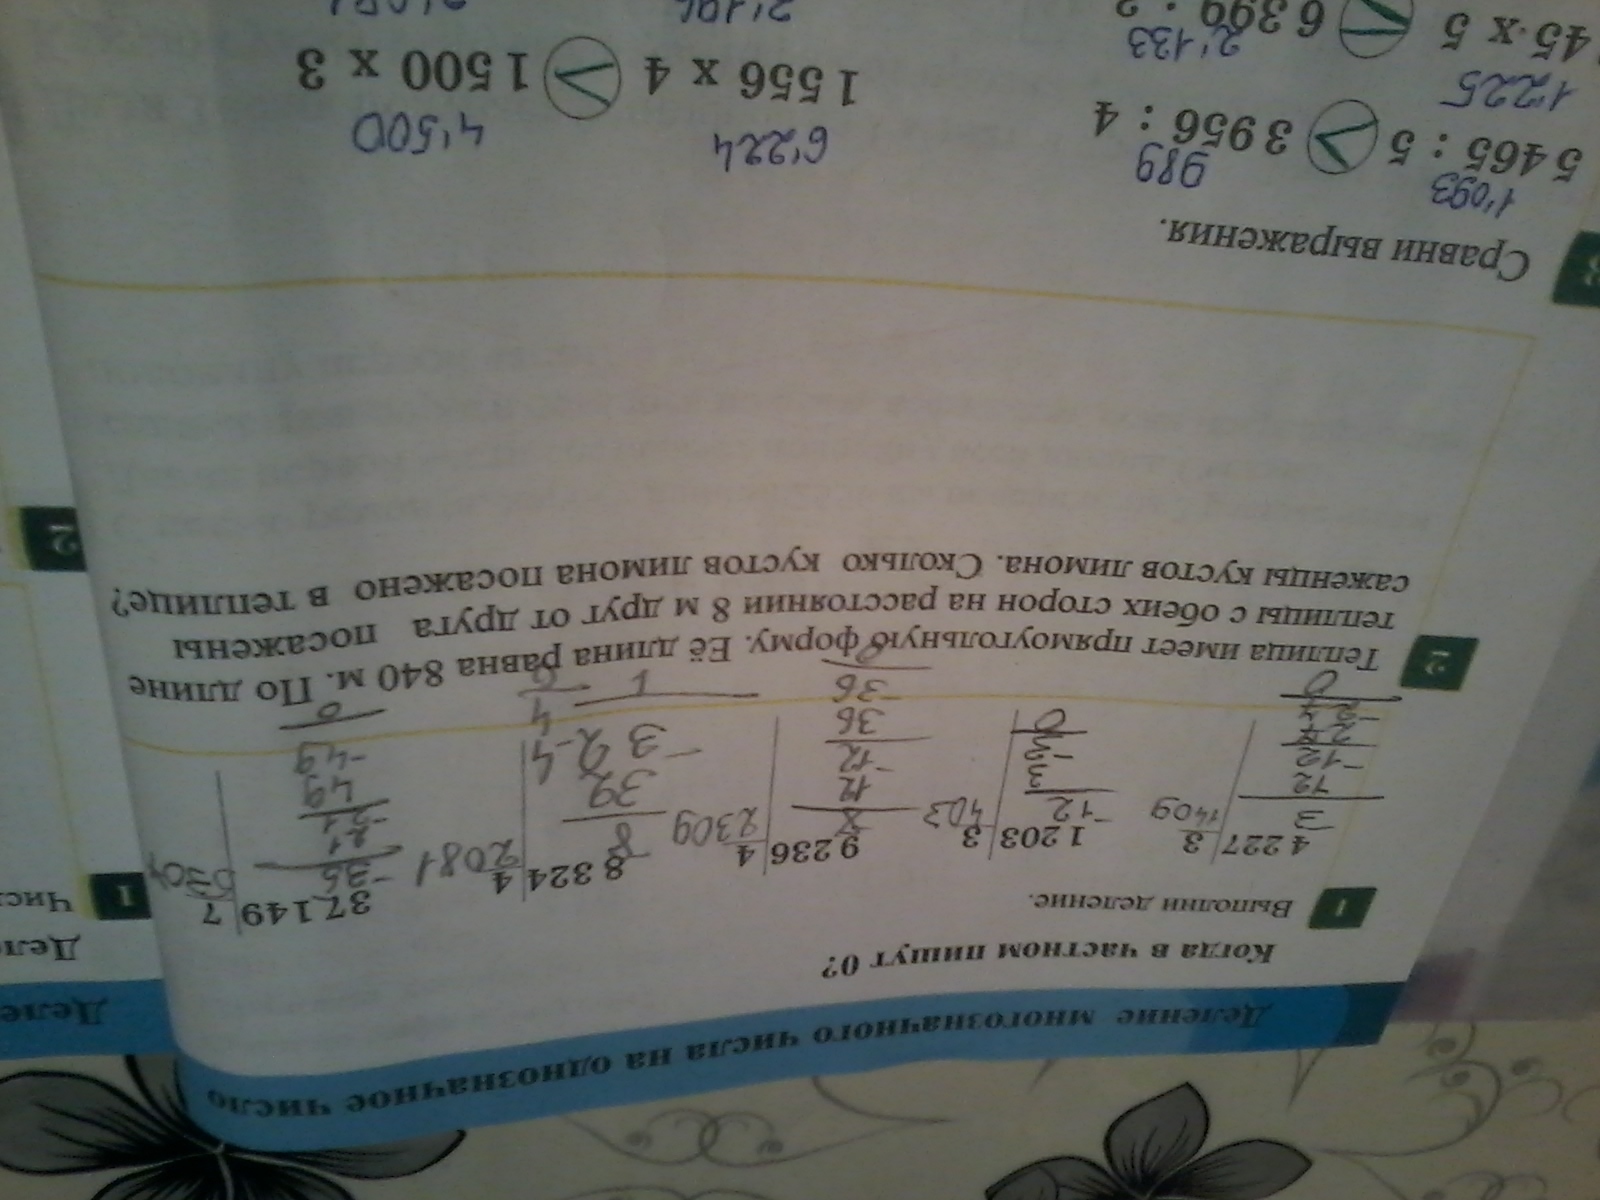 Деление многозначного числа на однозначное число
Когда в частном пишут 0?
1 Выполни деление.
4 227 3 1 203 3 9 236 4 8 324 4 37 149 7
3 1409 12 403 8 2309 8 2081 35
12 3 12 32 21
12 3 12 32 21
27 0 36 4 49
36 4 49
0 0 0
2 Теплица имеет прямоугольную форму. Её длина равна 840 м. По длине
теплицы с обеих сторон на расстоянии 8 м друг от друга посажены
саженцы кустов лимона. Сколько кустов лимона посажено в теплице?
3 Сравни выражения.
1'093 989 6'224 4'500
5 465 : 5 > 3 956 : 4 1 556 x 4 > 1 500 x 3
1'225 2'133
45 x 5 < 6 399 :
Деле
Деле
1 Чис
2